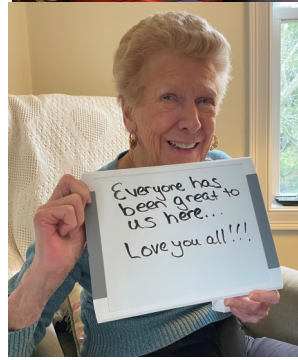 Everyone has
been great to
us here....
Love you all!!!